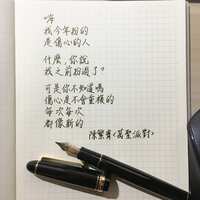 唉
我今年扮的
是傷心的人
什麼,你說
我之前扮過了?
可是你不知道嗎
傷心是不會重複的
每次每次
都像新的
陳繁齊《萬聖派對》